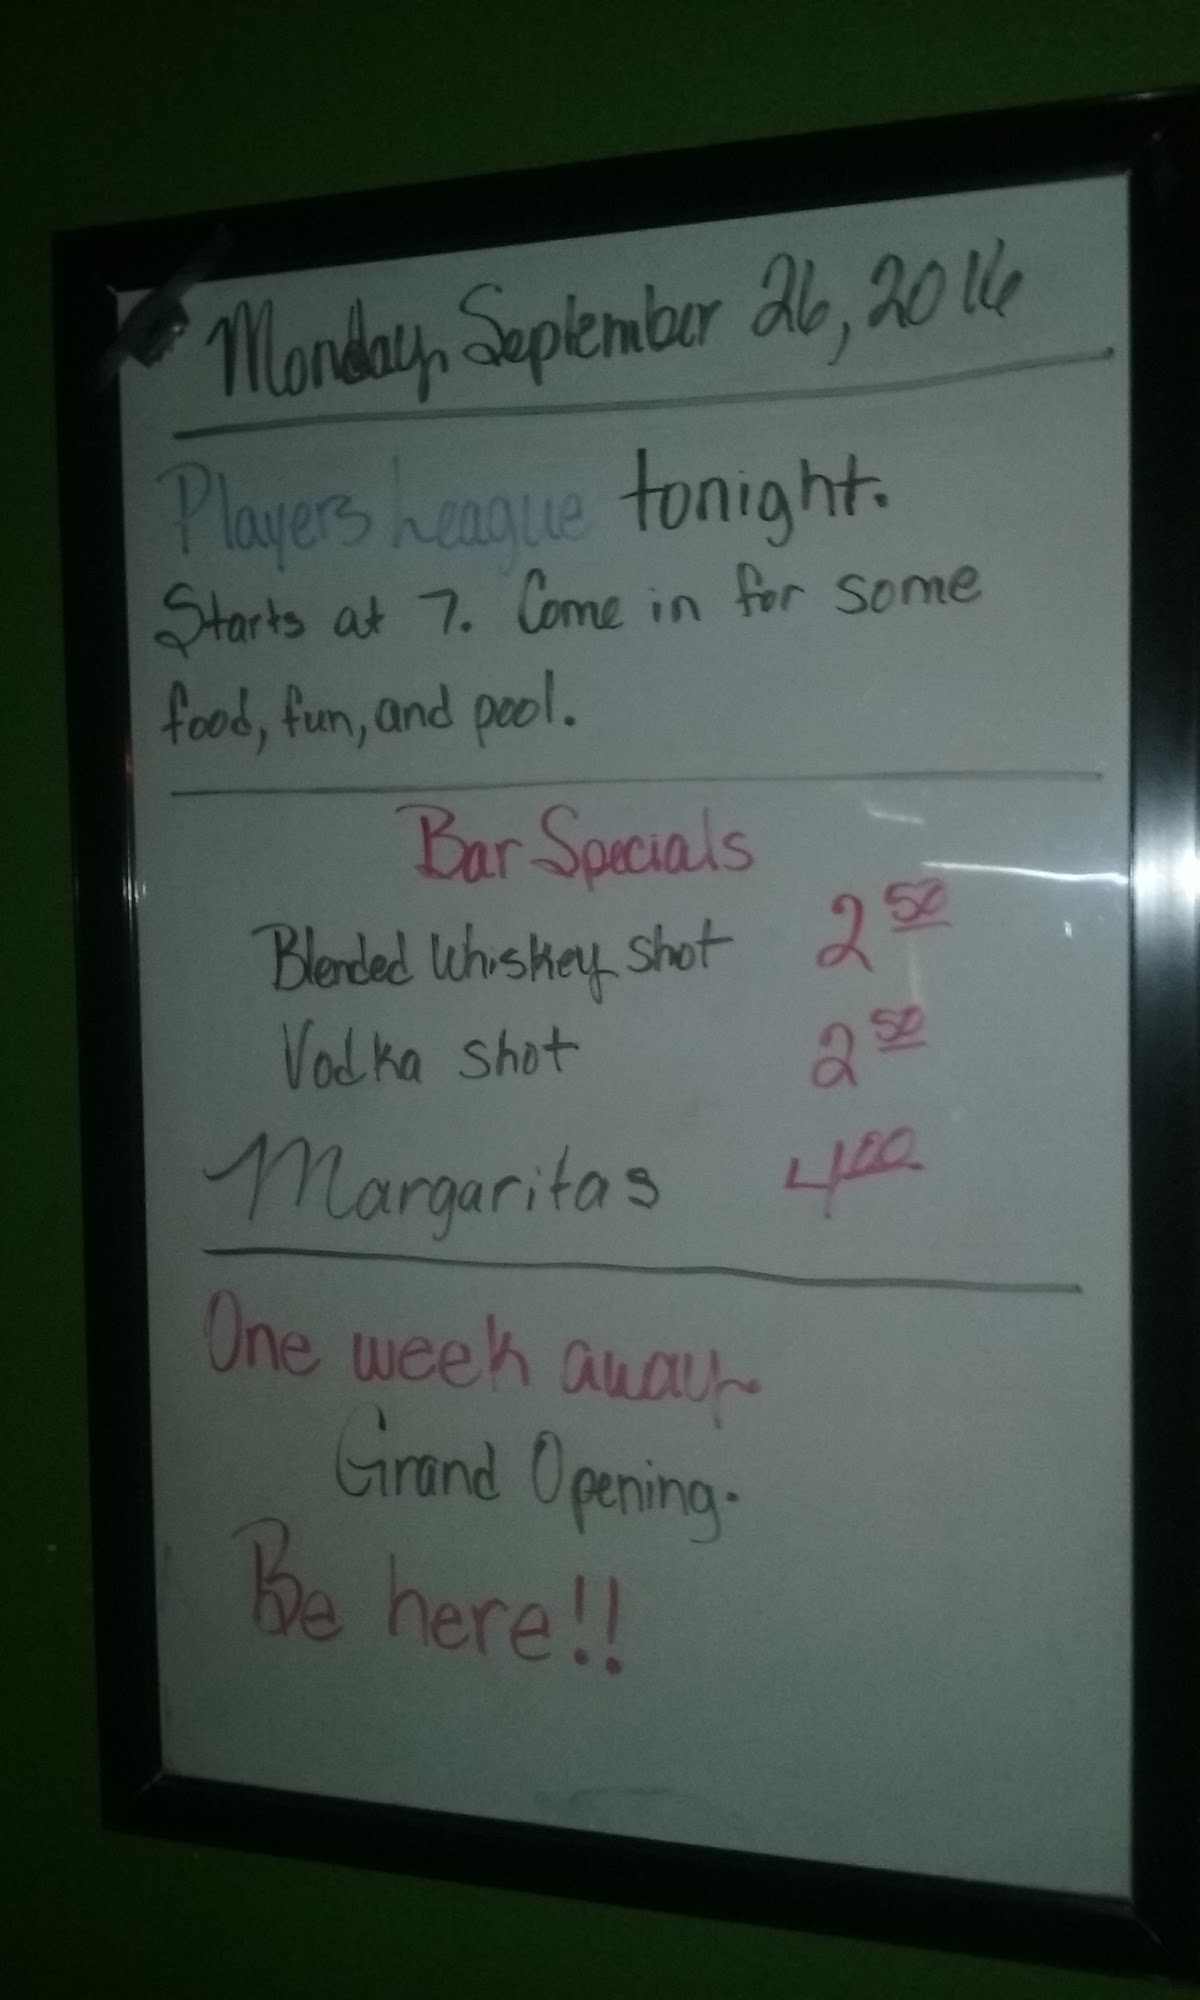 Monday, September 26, 2016
Players League tonight.
Starts at 7. Come in for some
food, fun, and pool.
Bar Specials
Blended Whiskey shot 2 50
Vodka shot 2 50
Margaritas 4 00
One week away.
Grand Opening.
Be here!!